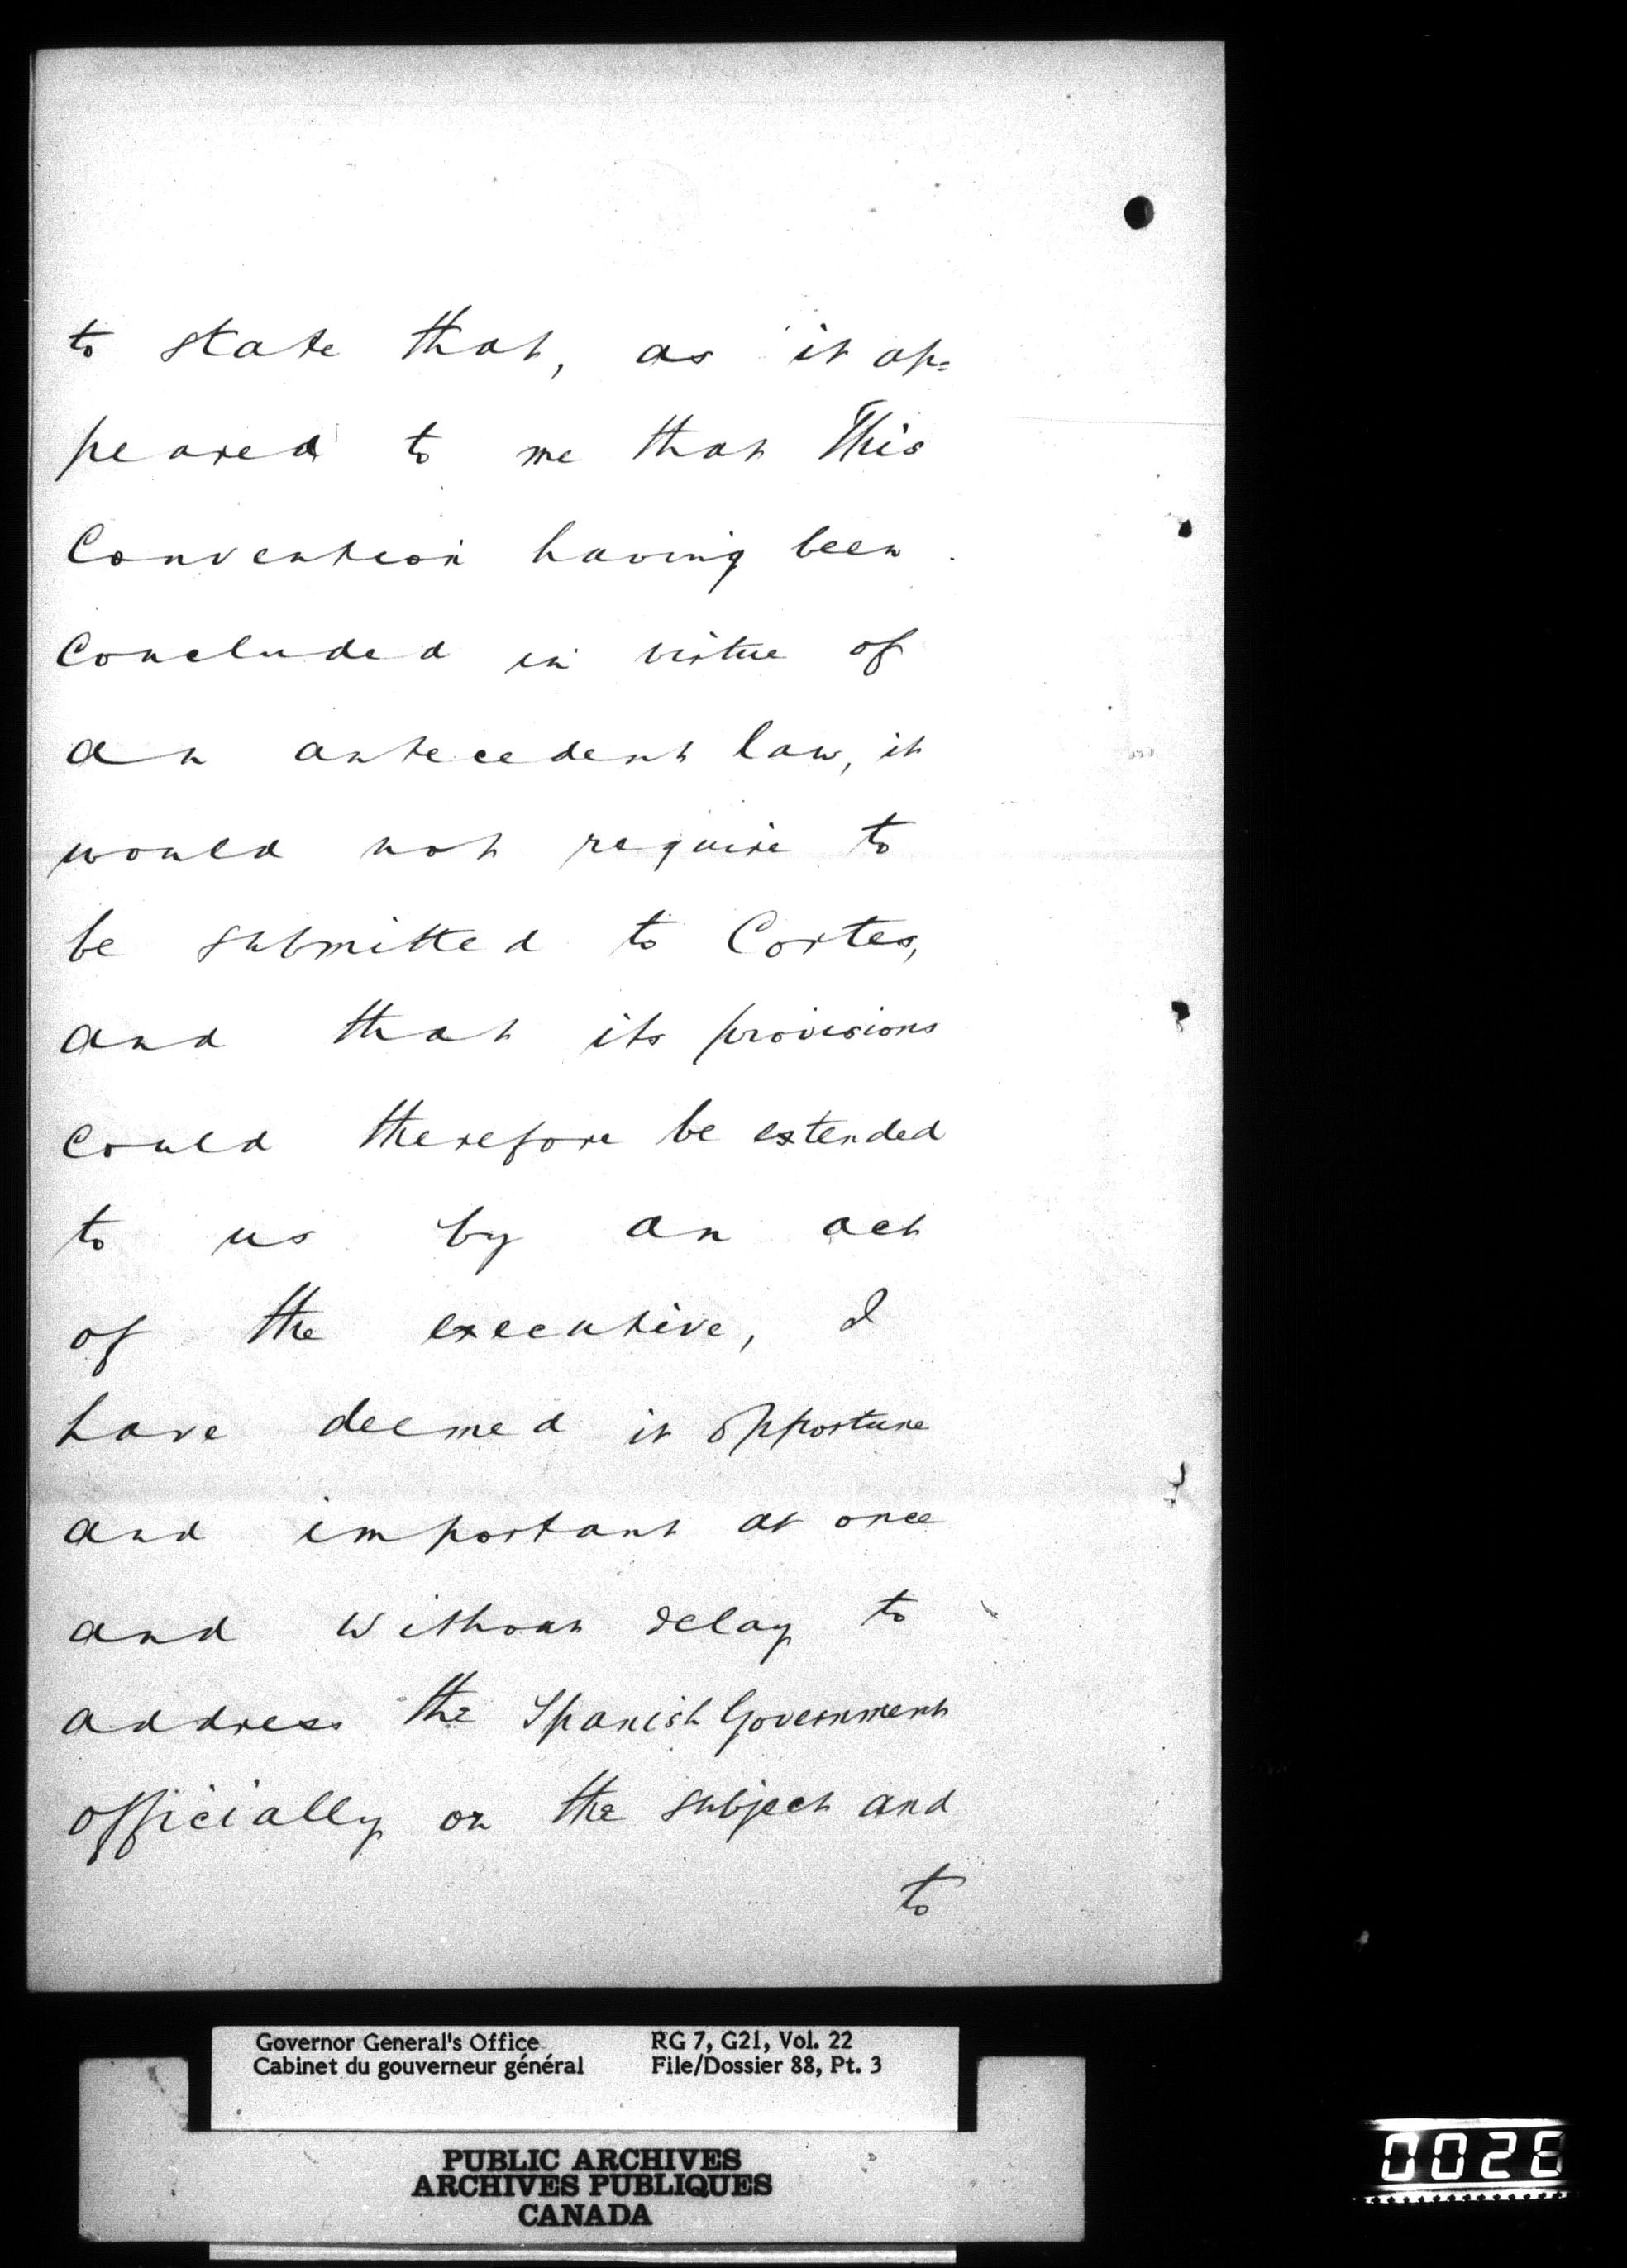 to state that, as it ap=
peared to me that This
Convention having been
Concluded in virtue of
an antecedent law, it
would not require to
be submitted to Cortes,
and that its provisions
could therefore be extended
to us by an act
of the executive, I
have deemed it opportune
and important at once
and without delay to
address the Spanish Government
officially on the subject and
to
Governor General's Office RG 7, G21, Vol. 22
Cabinet du gouverneur général File/Dossier 88, Pt. 3
PUBLIC ARCHIVES
ARCHIVES PUBLIQUES
CANADA